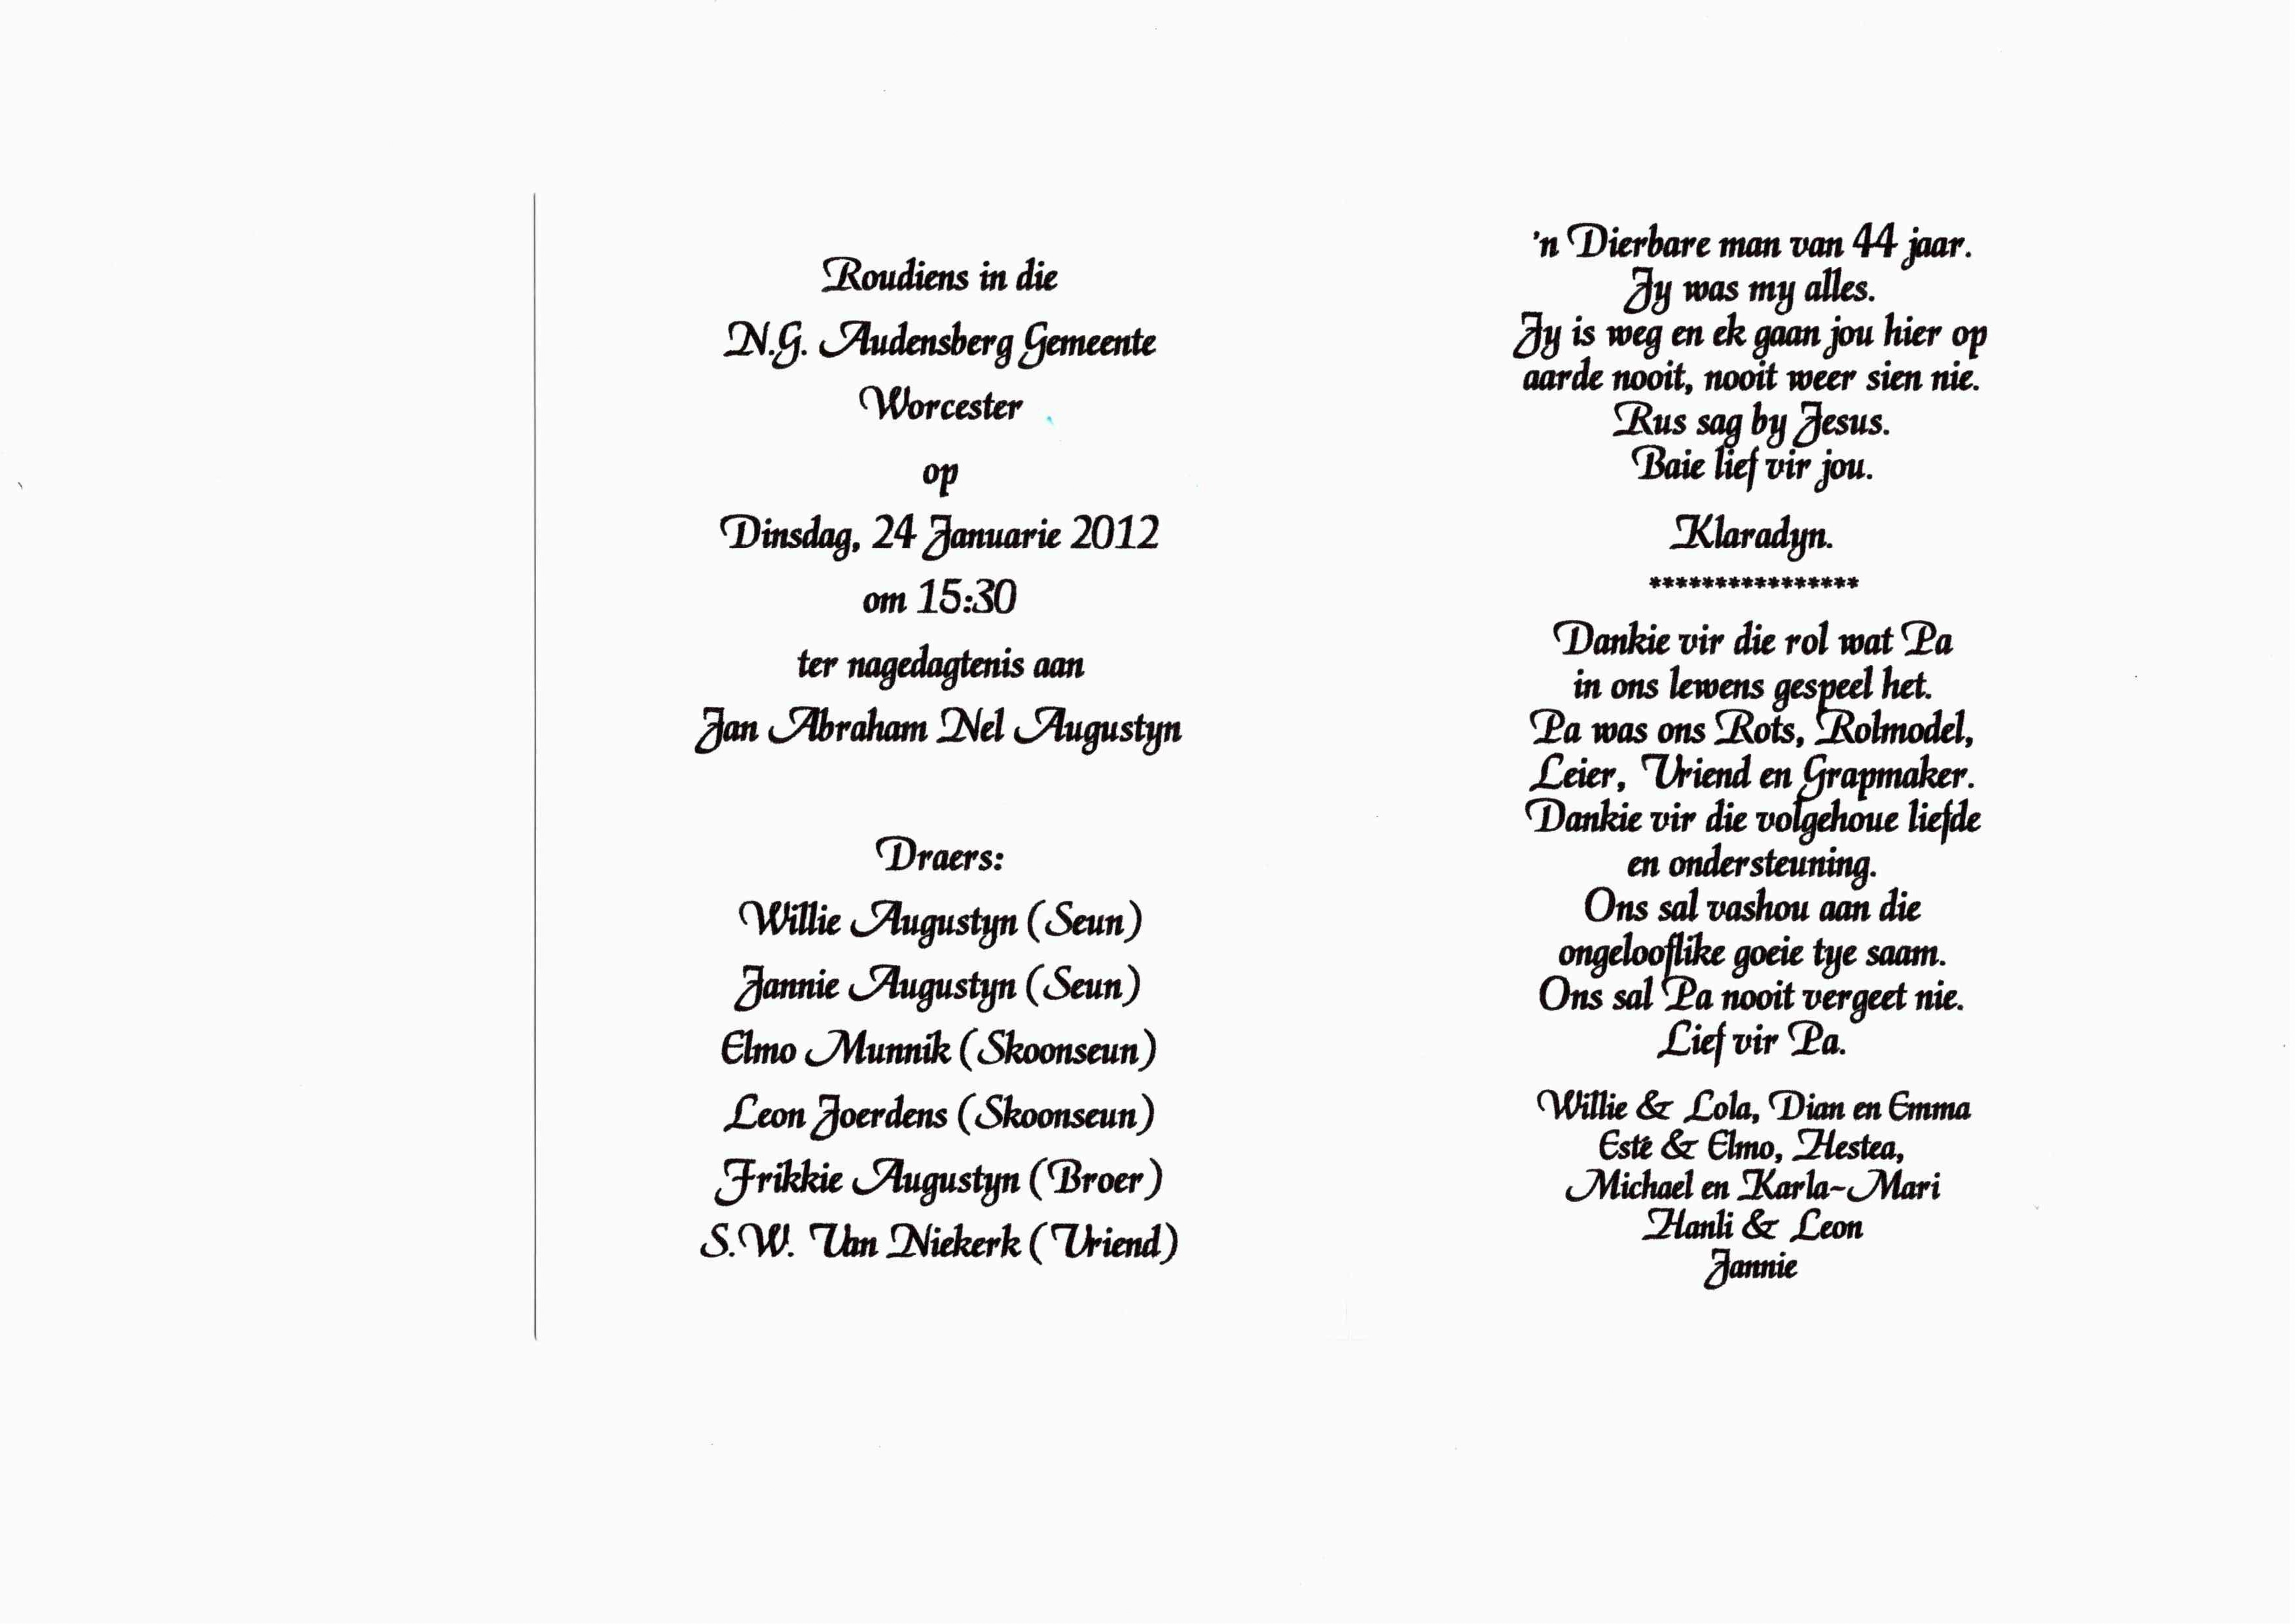 Roudiens in die
N.G. Audensberg Gemeente
Worcester
op
Dinsdag, 24 Januarie 2012
om 15:30
ter nagedagtenis aan
Jan Abraham Nel Augustyn
Draers:
Willie Augustyn (Seun)
Jannie Augustyn (Seun)
Elmo Munnik (Skoonseun)
Leon Joerdens (Skoonseun)
Frikkie Augustyn (Broer)
S.W. Van Niekerk (Vriend)
'n Dierbare man van 44 jaar.
Jy was my alles.
Jy is weg en ek gaan jou hier op
aarde nooit, nooit weer sien nie.
Rus sag by Jesus.
Baie lief vir jou.
Klaradyn.
****************
Dankie vir die rol wat Pa
in ons lewens gespeel het.
Pa was ons Rots, Rolmodel,
Leier, Vriend en Grapmaker.
Dankie vir die volgehoue liefde
en ondersteuning.
Ons sal vashou aan die
ongelooflike goeie tye saam.
Ons sal Pa nooit vergeet nie.
Lief vir Pa.
Willie & Lola, Dian en Emma
Esté & Elmo, Hestea,
Michael en Karla~Mari
Hanli & Leon
Jannie